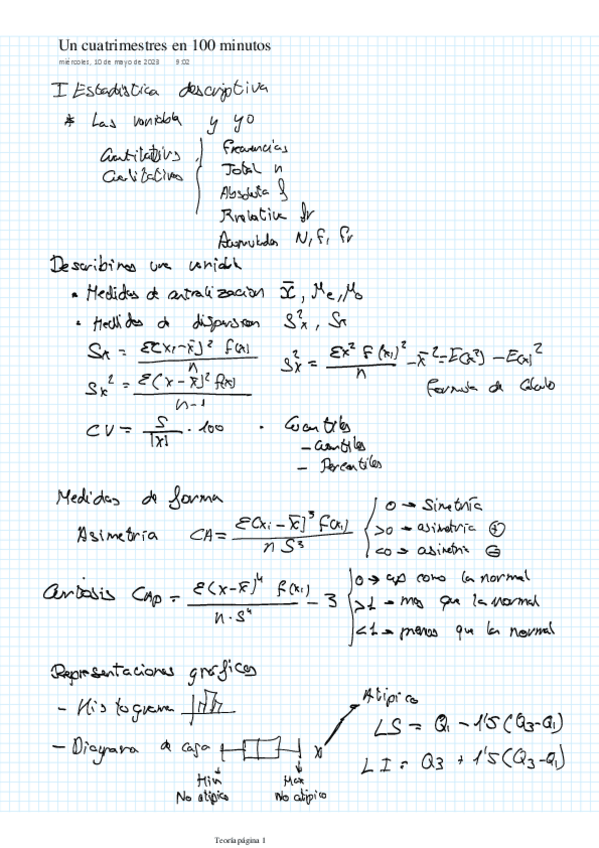 Un cuatrimestres en 100 minutos
miércoles, 10 de mayo de 2023 9:02
I Estadística descriptiva
* Las variables y yo
Cuantitativas
Cualitativas
Frecuencias
Total n
Absoluta f
Rrelativa fr
Acumuladas N, F, Fr
Describimos una variable
• Medidas de centralizacion x̄, Me, Mo
• Medidas de dispersion S²x, Sx
Sx = Σ(xi-x̄)² f(xi) / n
S²x = Σx² f(xi)² / n - x̄² = E(x²) - E(x)²
Formula de Cálculo
Sx² = Σ(x-x̄)² f(xi) / n-1
CV = S / |x̄| · 100
• Cuantiles
- Cuartiles
- Percentiles
Medidas de forma
Asimetría CA = Σ(xi-x̄)³ f(xi) / n S³
0 → Simetría
>0 → asimetría ⊕
<0 → asimetria ⊖
Curtosis CAp = Σ(x-x̄)⁴ f(xi) / n·S⁴ - 3
0 → ap como la normal
>1 → mas que la normal
<1 → menos que la normal
Representaciones gráficas
- Histograma
- Diagrama de caja
x
Atipico
Min
No atipico
Max
No atipico
LS = Q1 - 1'5(Q3-Q1)
LI = Q3 + 1'5(Q3-Q1)
Teoría página 1